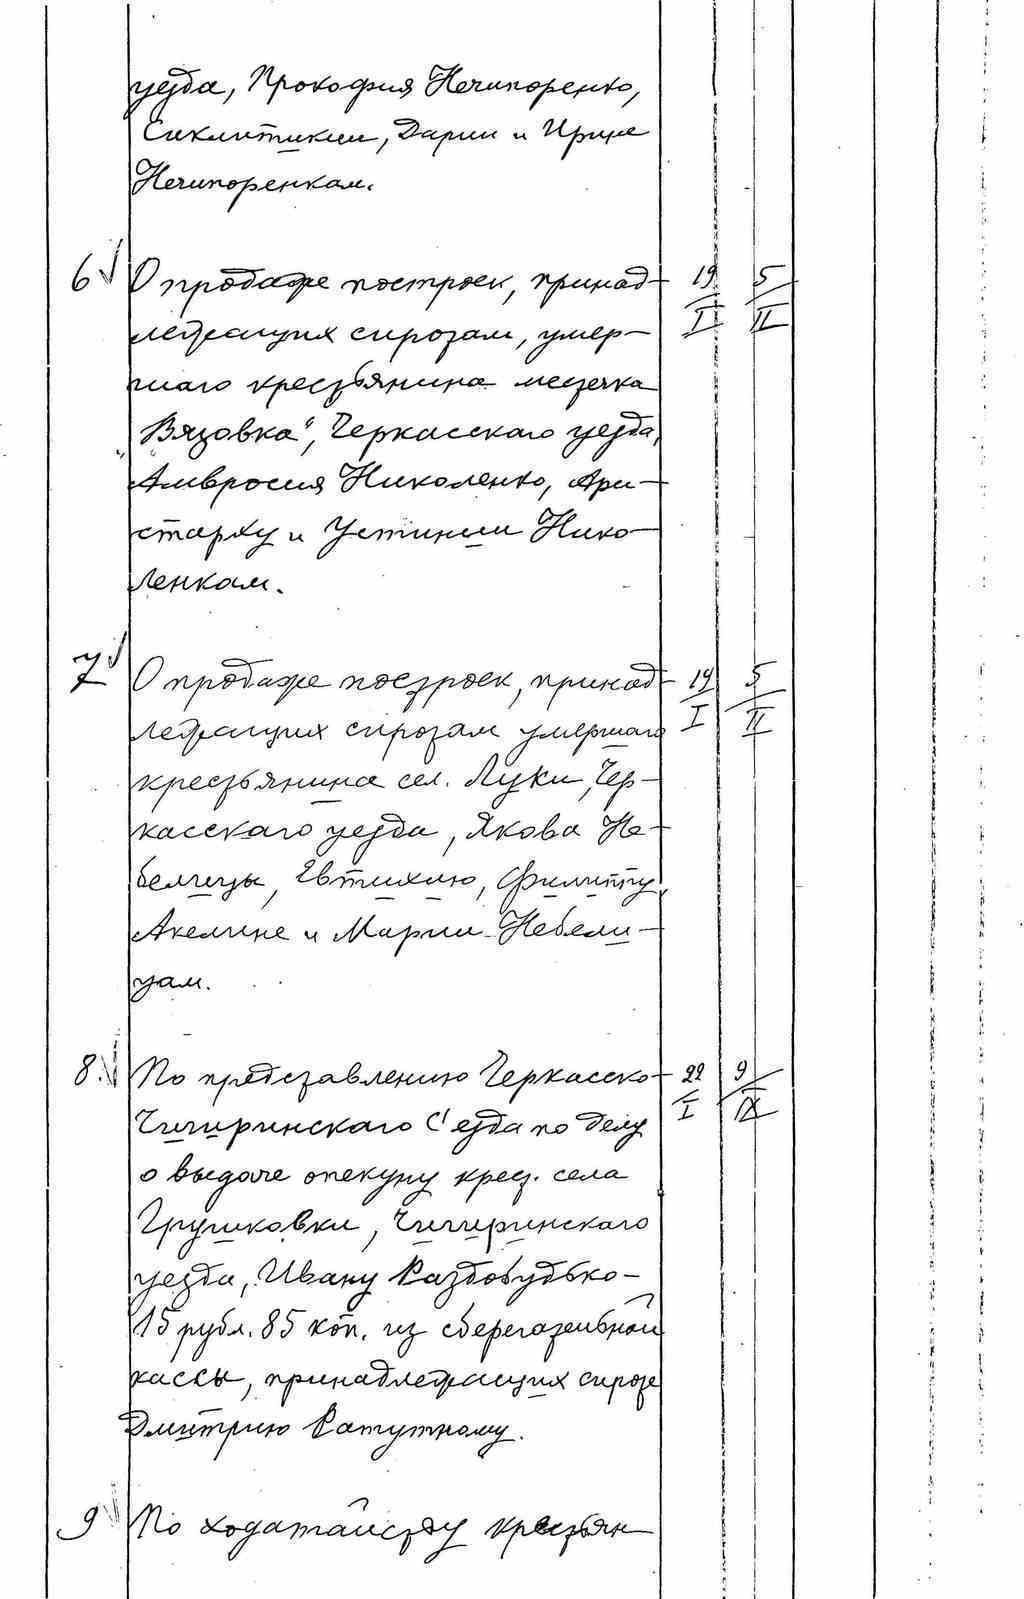 уезда, Прокофия Нечипоренко,
Синклитикии, Дарии и Ирине
Нечипоренкам.
6 О продаже построек, принад- 19/I 5/II
лежащих сиротам, умер-
шаго крестьянина местечка
"Вязовка", Черкасскаго уезда,
Амвросия Николенко, Ари-
старху и Устинии Нико-
ленкам.
7 О продаже построек, принад- 19/I 5/II
лежащих сиротам умершаго
крестьянина сел. Луки, Чер-
касскаго уезда, Якова Не-
белицы, Евтихию, Филиппу,
Акелине и Марии Небели-
цам.
8. По представлению Черкасско- 22/I 9/IX
Чигиринскаго С'езда по делу
о выдаче опекуну крест. села
Грушковки, Чигиринскаго
уезда, Ивану Раздобудько-
15 рубл. 85 коп. из сберегательной
кассы, принадлежащих сироте
Дмитрию Ратутному.
9 По ходатайству крестьян